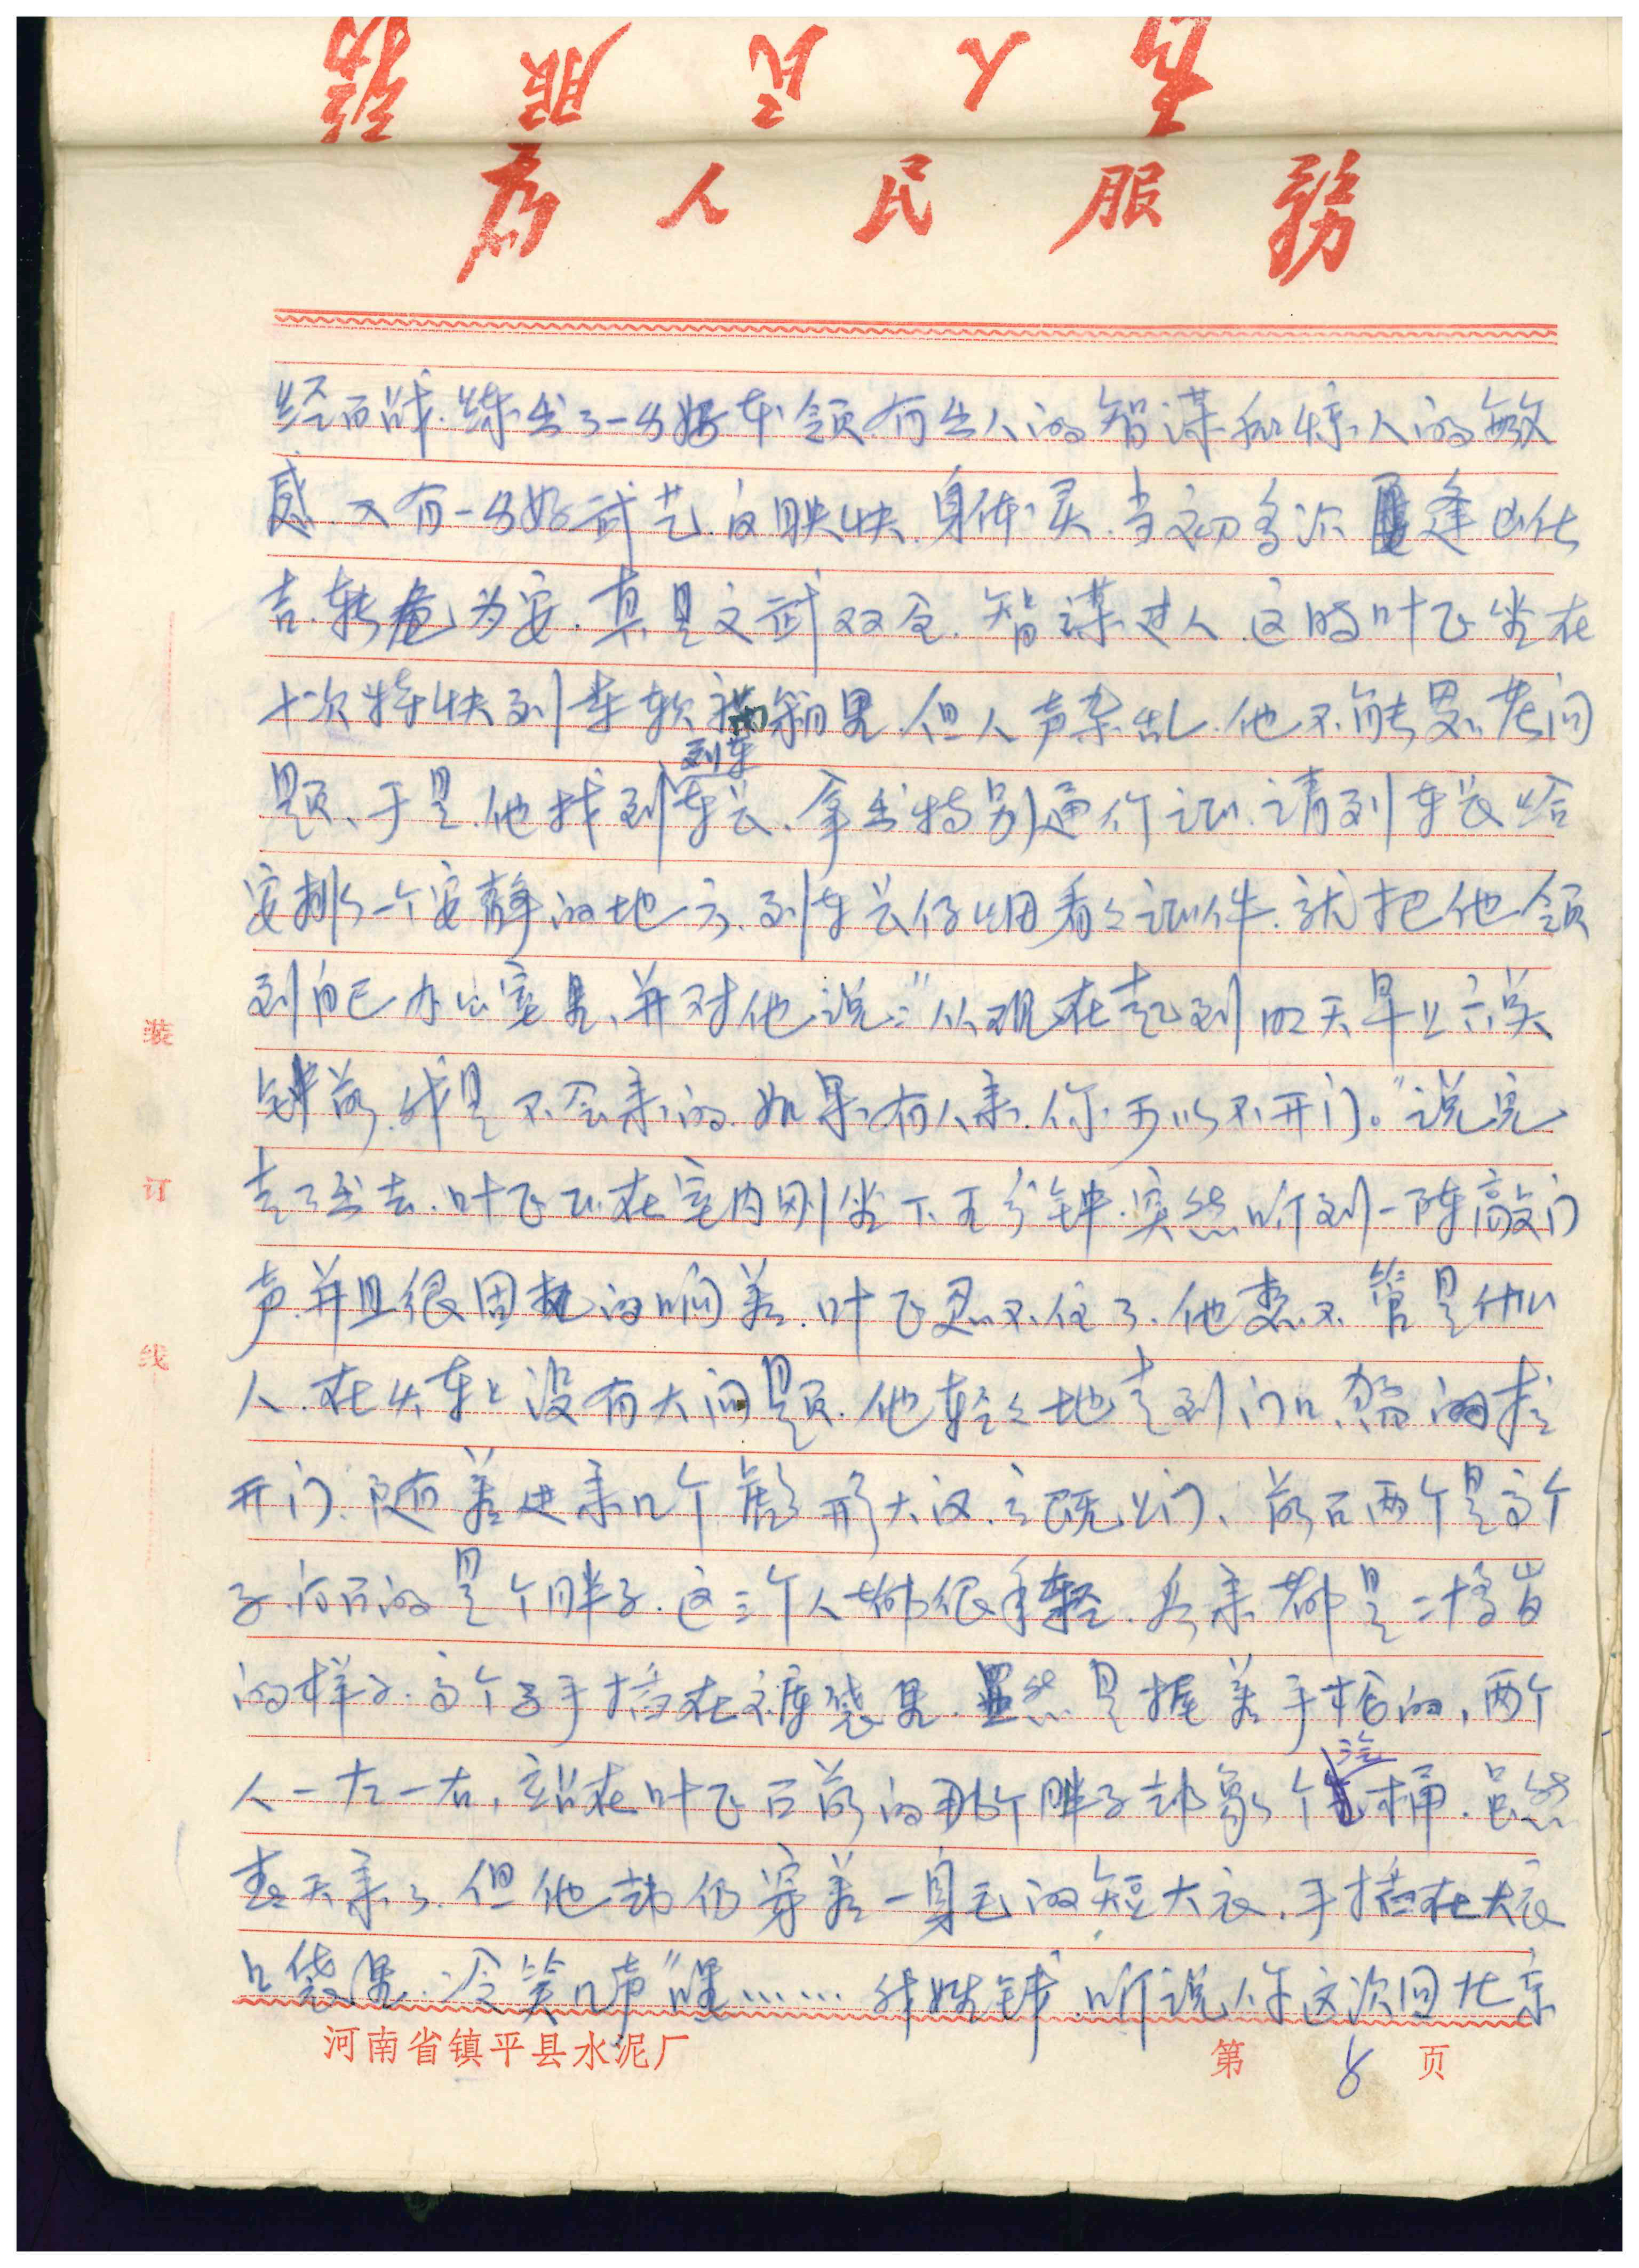 为人民服务
為人民服務
经百战.练出了一身好本领.有出人的智谋和惊人的敏
感.又有一身好武艺.反映快.身体灵.当初多次逢凶化
吉.转危为安.真是文武双全.智谋过人.这时叶飞坐在
十次特快列车软箱里.但人声杂乱.他不能思考问
题、于是.他找到列车车长、拿出特别通行证.请列车长给
安排一个安静的地方、列车长仔细看了证件.就把他领
到自己办公室里、并对他说:“从现在起到明天早上六点
钟前.我是不会来的.如果有人来.你可以不开门。”说完
走了出去.叶飞正在室内刚坐下五分钟.突然听到一阵敲门
声.并且很固执的响着.叶飞忍不住了.他想不管是什么
人.在火车上没有大问题.他轻轻地走到门口.忽的拉
开门.随着进来几个彪形大汉.立既上门、前面两个是高个
子.后面的是个胖子.这三个人都很年轻.看来都是二十多岁
的样子.高个子手插在裤袋里.显然是握着手枪的,两个
人一左一右,站在叶飞面前的那个胖子却象个汽桶.虽然
春天来了.但他却仍穿着一身毛的短大衣.手插在大衣
口袋里.冷笑几声“嘿……我姓钱.听说你这次回北京
装
订
线
河南省镇平县水泥厂 第 8 页